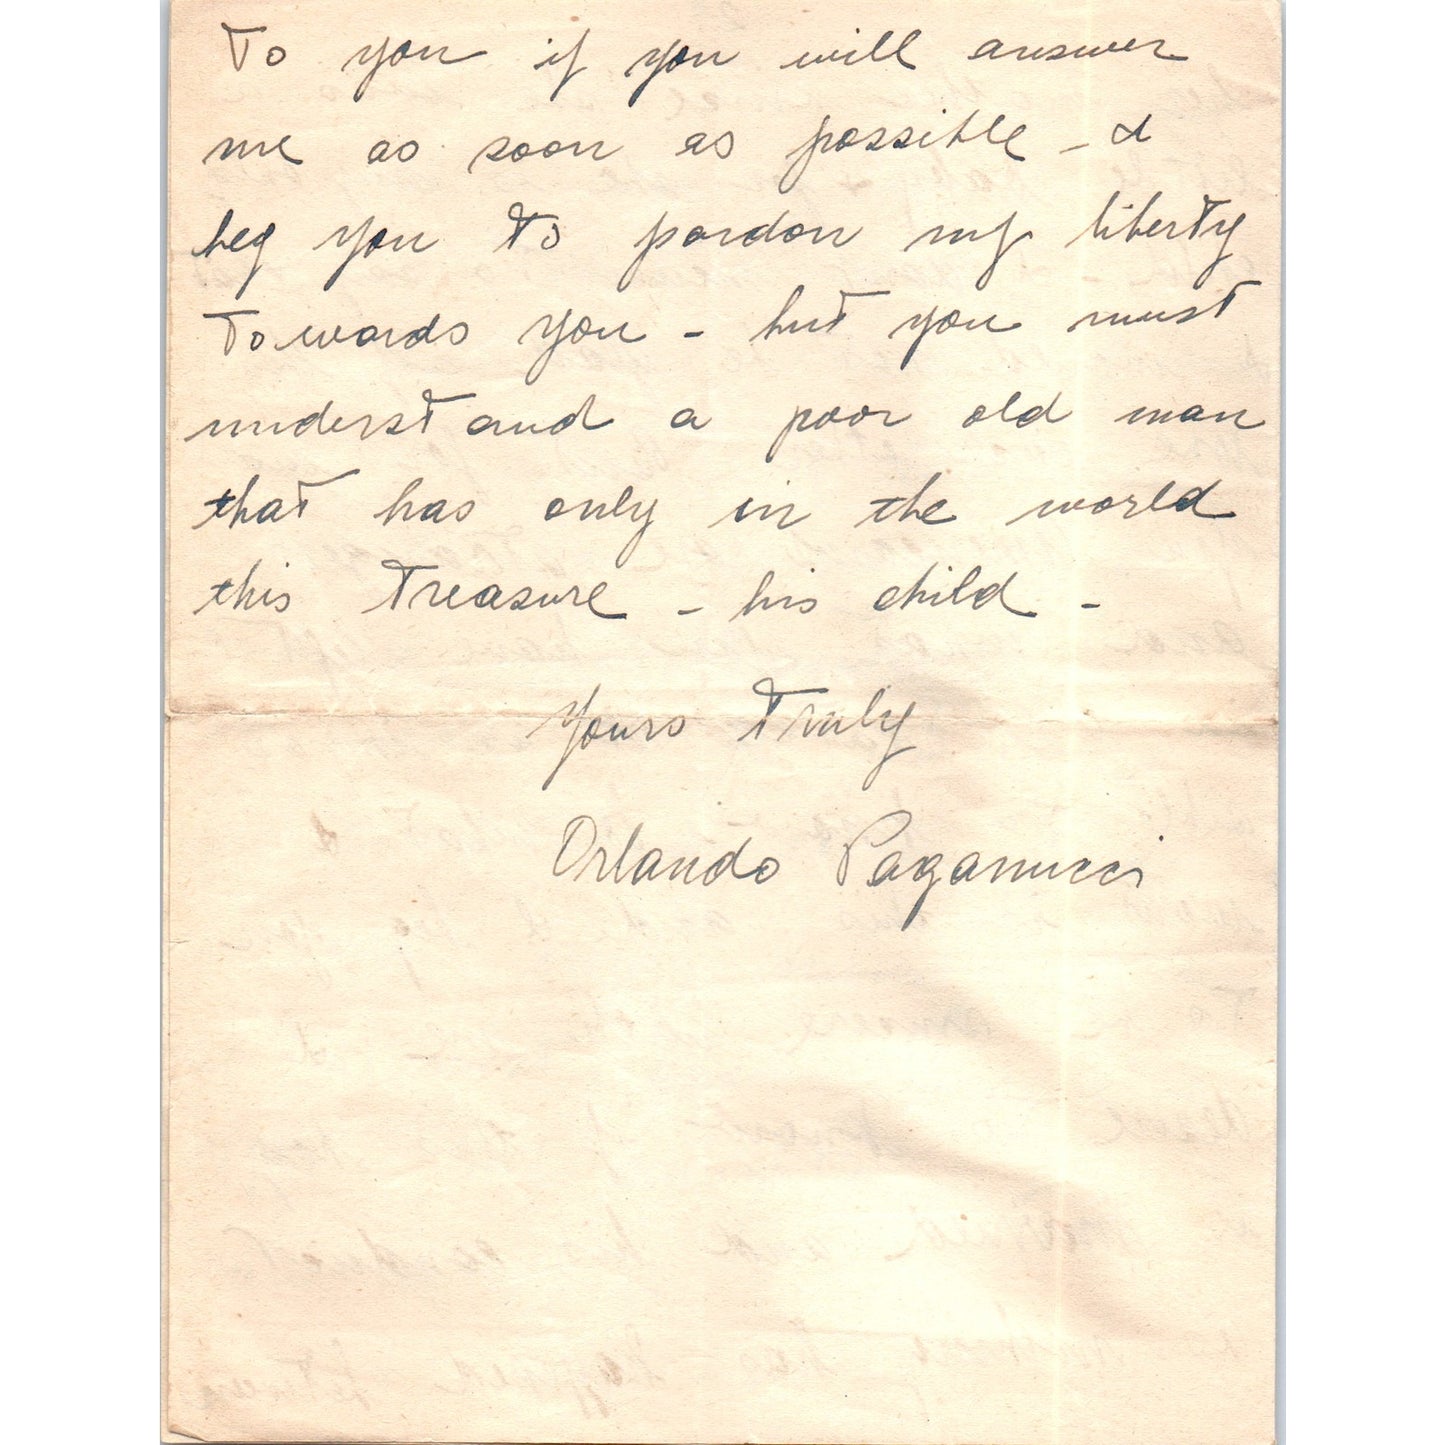 To you if you will answer
me as soon as possible - I
beg you to pardon my liberty
Towards you - but you must
understand a poor old man
that has only in the world
this Treasure - his child -
Yours Truly
Orlando Paganucci